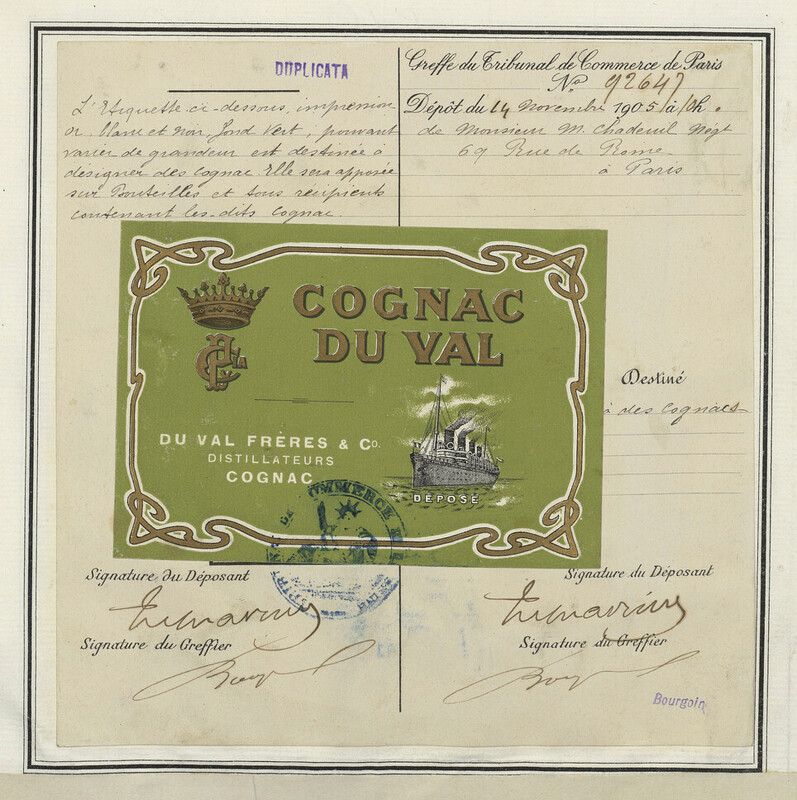 DUPLICATA
L'Etiquette ci-dessous, impression
or, blanc et noir, fond vert, pouvant
varier de grandeur est destinée à
désigner des cognac. Elle sera apposée
sur bouteilles et tous récipients
contenant les-dits Cognac.
Greffe du Tribunal de Commerce de Paris
No 92647
Dépôt du 14 Novembre 1905 à 10h.
de Monsieur M. Chadeuil Négt
69 Rue de Rome
à Paris
COGNAC
DU VAL
DU VAL FRÈRES & Co.
DISTILLATEURS
COGNAC
DÉPOSÉ
Destiné
à des Cognacs
COMMERCE
Signature du Déposant
Signature du Greffier
Signature du Déposant
Signature du Greffier
Bourgoin